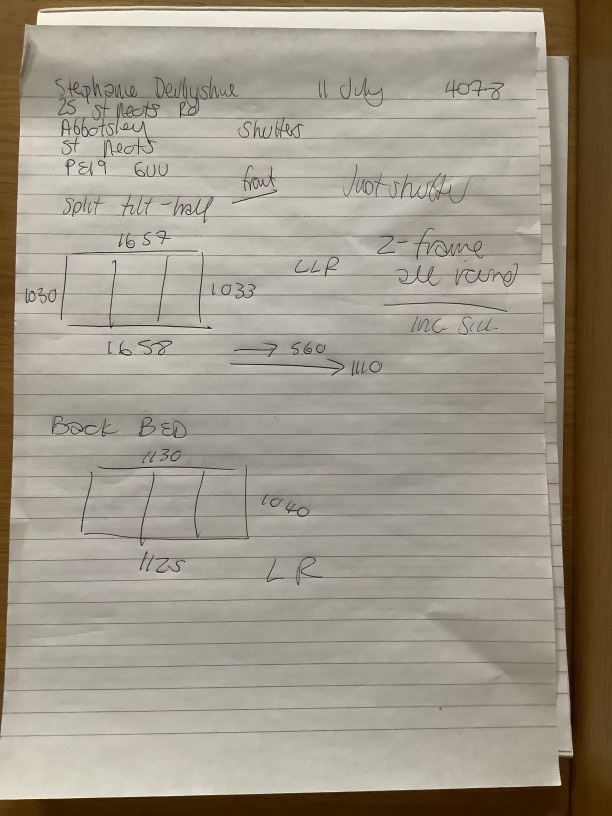 Stephanie Derbyshire 11 July 4078
25 St Neots Rd
Abbotsley Shutters
St Neots
PE19 6UU
front Just shutter
Split tilt-half
1657
LLR Z-frame
all round
1030 1033
inc Sill
1658 → 560
→ 1110
Back BED
1130
1040
1125 L R